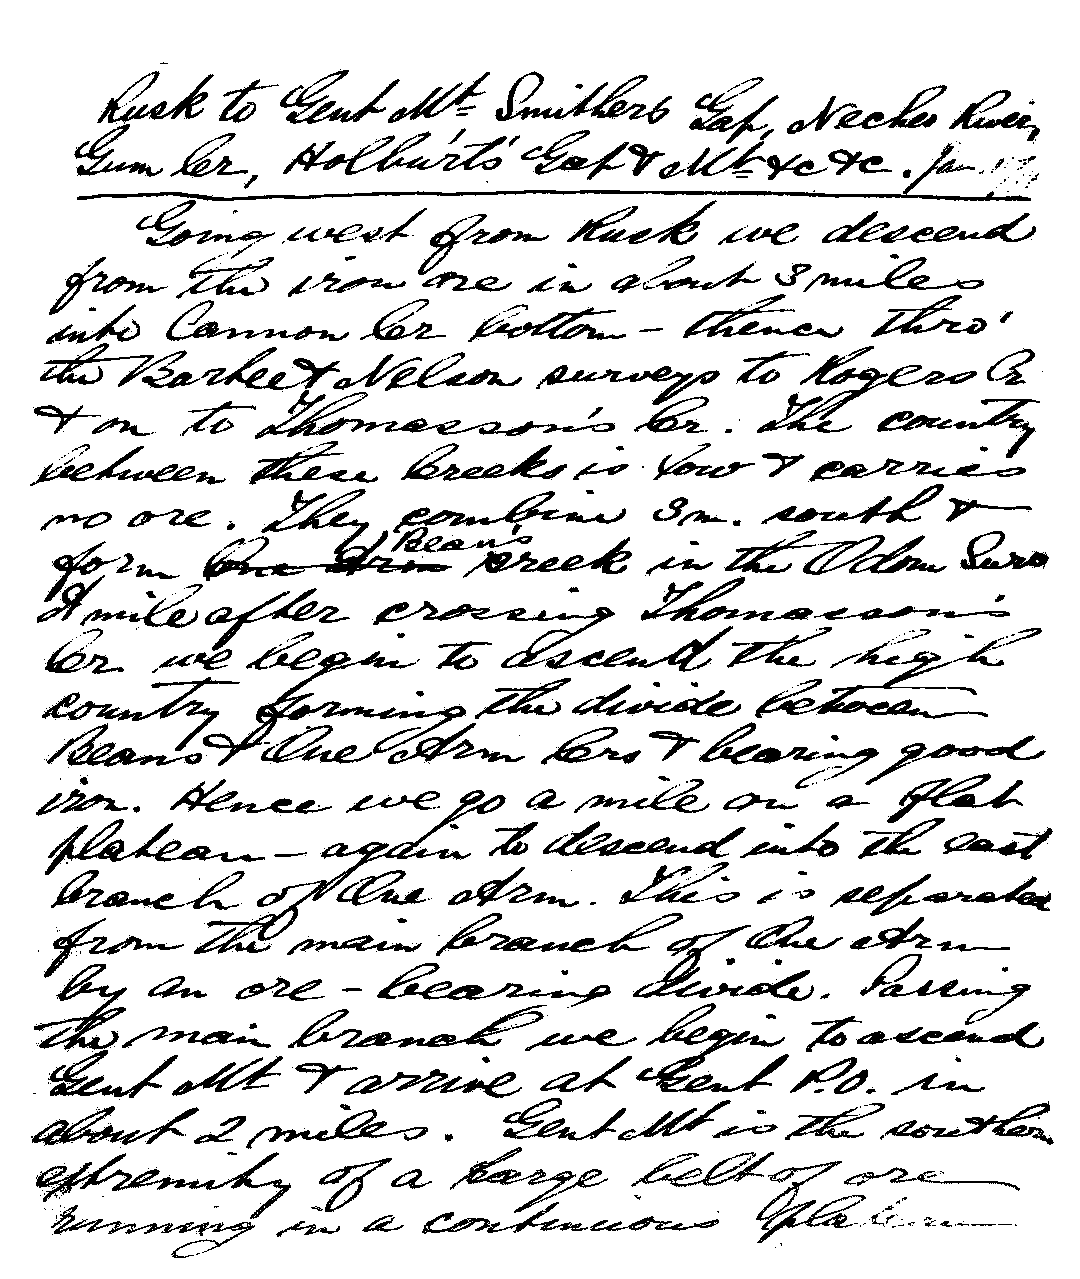 Rusk to Gent Mt= Smithers Gap, Neches River,
Gum Cr, Holburts' Gap & Mt= &c &c. Jan.
Going west from Rusk we descend
from the iron ore in about 3 miles
into Cannon Cr bottom - thence thro'
the Barbee & Nelson surveys to Rogers Cr
& on to Thomasson's Cr. The country
between these Creeks is low & carries
no ore. They combine 3 m. south &
form One Arm Bean's creek in the Odom Surv
A mile after crossing Thomasson's
Cr we begin to ascend the high
country forming the divide between
Beans & One Arm Crs & bearing good
iron. Hence we go a mile on a flat
plateau - again to descend into the east
branch of One Arm. This is separated
from the main branch of One Arm
by an ore-bearing divide. Passing
the main branch we begin to ascend
Gent Mt & arrive at Gent P.O. in
about 2 miles. Gent Mt is the southern
extremity of a large belt of ore
running in a continuous plateau